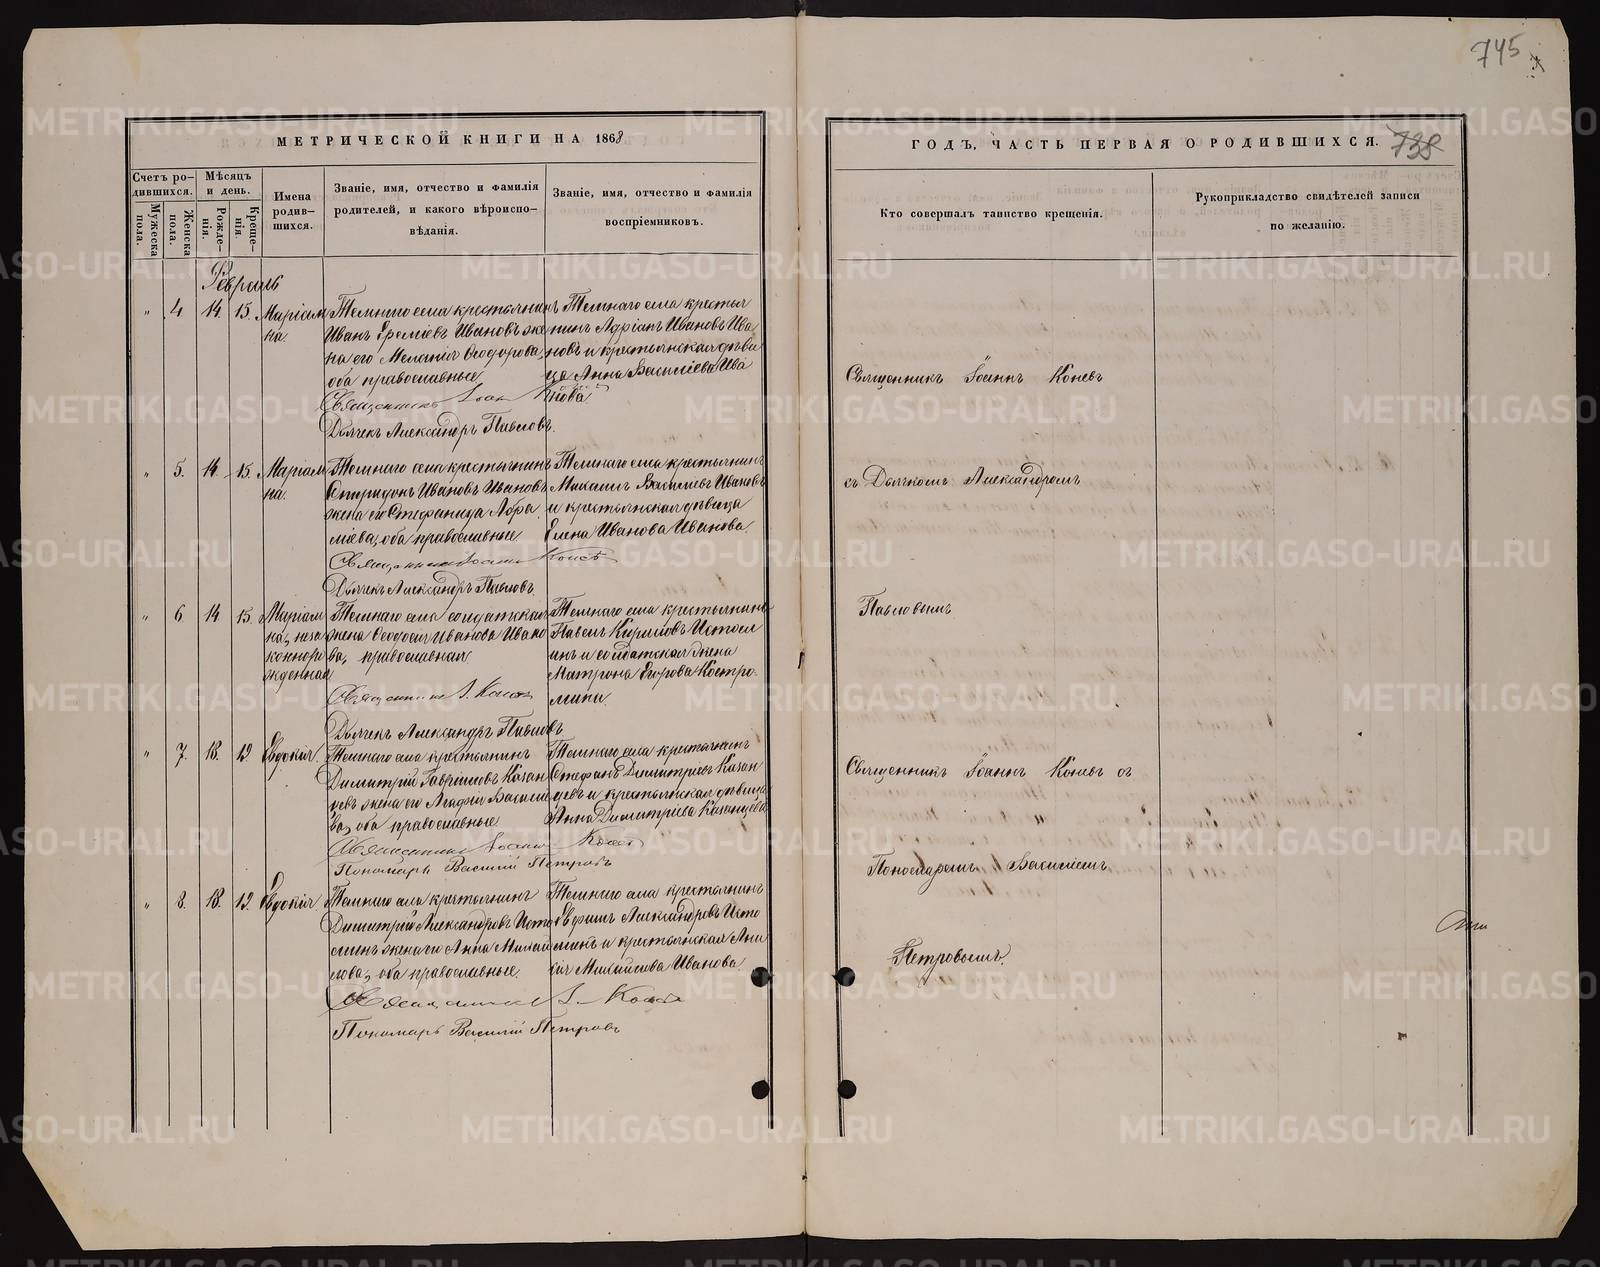 745
МЕТРИЧЕСКОЙ КНИГИ НА 1868
ГОДЪ, ЧАСТЬ ПЕРВАЯ О РОДИВШИХСЯ.
738
Счетъ ро-
дившихся.
Мужеска
пола.
Женска
пола.
Мѣсяцъ
и день.
Рожде-
нія.
Креще-
нія.
Имена
родив-
шихся.
Званіе, имя, отчество и фамилія
родителей, и какого вѣроиспо-
вѣданія.
Званіе, имя, отчество и фамилія
воспріемниковъ.
Кто совершалъ таинство крещенія.
Рукоприкладство свидѣтелей записи
по желанію.
Февраль
" 4. 14. 15.
Маріам
на.
Темнаго села крестьянинъ
Иванъ Ереміевъ Ивановъ же
на его Меланія Ѳеодорова,
оба православные
Священникъ Іоан Коневъ
Дьячекъ Александръ Павловъ.
Темнаго села крестья
нинъ Адріанъ Ивановъ Ива
новъ и крестьянская дѣви
ца Анна Василіева Ива
нова
" 5. 14. 15.
Маріам
на.
Темнаго села крестьянинъ
Спиридонъ Ивановъ Ивановъ
жена его Стефанида Абра
міева, оба православные
Священникъ Іоаннъ Коневъ
Дьячекъ Александръ Павловъ.
Темнаго села крестьянинъ
Михаилъ Василіевъ Ивановъ
и крестьянская дѣвица
Елена Иванова Иванова.
" 6 14 15.
Маріам
на, неза
коннорo
жденная
Темнаго села солдатская
жена Ѳеодосія Иванова Ивано
ва, православная
Священникъ І. Коневъ
Дьячекъ Александръ Павловъ
Темнаго села крестьянинъ
Павелъ Кириловъ Истом
инъ и солдатская жена
Матрона Егорова Костро-
мина.
" 7. 18. 19.
Евдокія.
Темнаго села крестьянинъ
Димитрій Гавріиловъ Казан
цевъ жена его Агафія Василіе
ва, оба православные
Священникъ Іоаннъ Коневъ
Пономарь Василій Петровъ
Темнаго села крестьянинъ
Стефанъ Димитріевъ Казан
цевъ и крестьянская дѣвица
Анна Димитріева Казанцева
" 8. 18. 19.
Евдокія.
Темнаго села крестьянинъ
Димитрій Александровъ Исто
минъ жена его Анна Михаи
лова, оба православные.
Священникъ І. Коневъ
Пономарь Василій Петровъ
Темнаго села крестьянинъ
Ефимъ Александровъ Исто
минъ и крестьянская
Михайлова Иванова.
Священникъ Іоаннъ Коневъ
съ Дьячкомъ Александромъ
Павловымъ
Священникъ Іоаннъ Коневъ съ
Пономаремъ Василіемъ
Петровымъ.